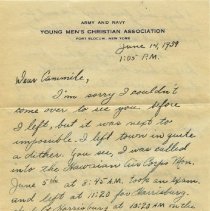 ARMY AND NAVY
YOUNG MEN'S CHRISTIAN ASSOCIATION
FORT SLOCUM, NEW YORK
June 14, 1939
1:05 P.M.
Dear Cammile,
I'm sorry I couldn't
come over to see you before
I left, but it was next to
impossible. I left town in quite
a dither. You see, I was called
into the Hawaiian Air Corps Mon.
June 5th at 8:45 A.M. took an exam
and left at 11:20 for Harrisburg.
Harrisburg at 10:20 A.M. on the